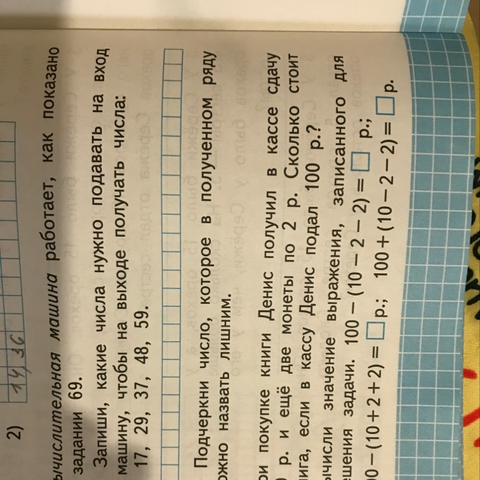 2) 14, 36
вычислительная машина работает, как показано
задании 69.
Запиши, какие числа нужно подавать на вход
машину, чтобы на выходе получать числа:
17, 29, 37, 48, 59.
Подчеркни число, которое в полученном ряду
ожно назвать лишним.
ри покупке книги Денис получил в кассе сдачу
0 р. и ещё две монеты по 2 р. Сколько стоит
нига, если в кассу Денис подал 100 р.?
ычисли значение выражения, записанного для
ешения задачи. 100 − (10 − 2 − 2) = □ р.;
00 − (10 + 2 + 2) = □ р.; 100 + (10 − 2 − 2) = □ р.